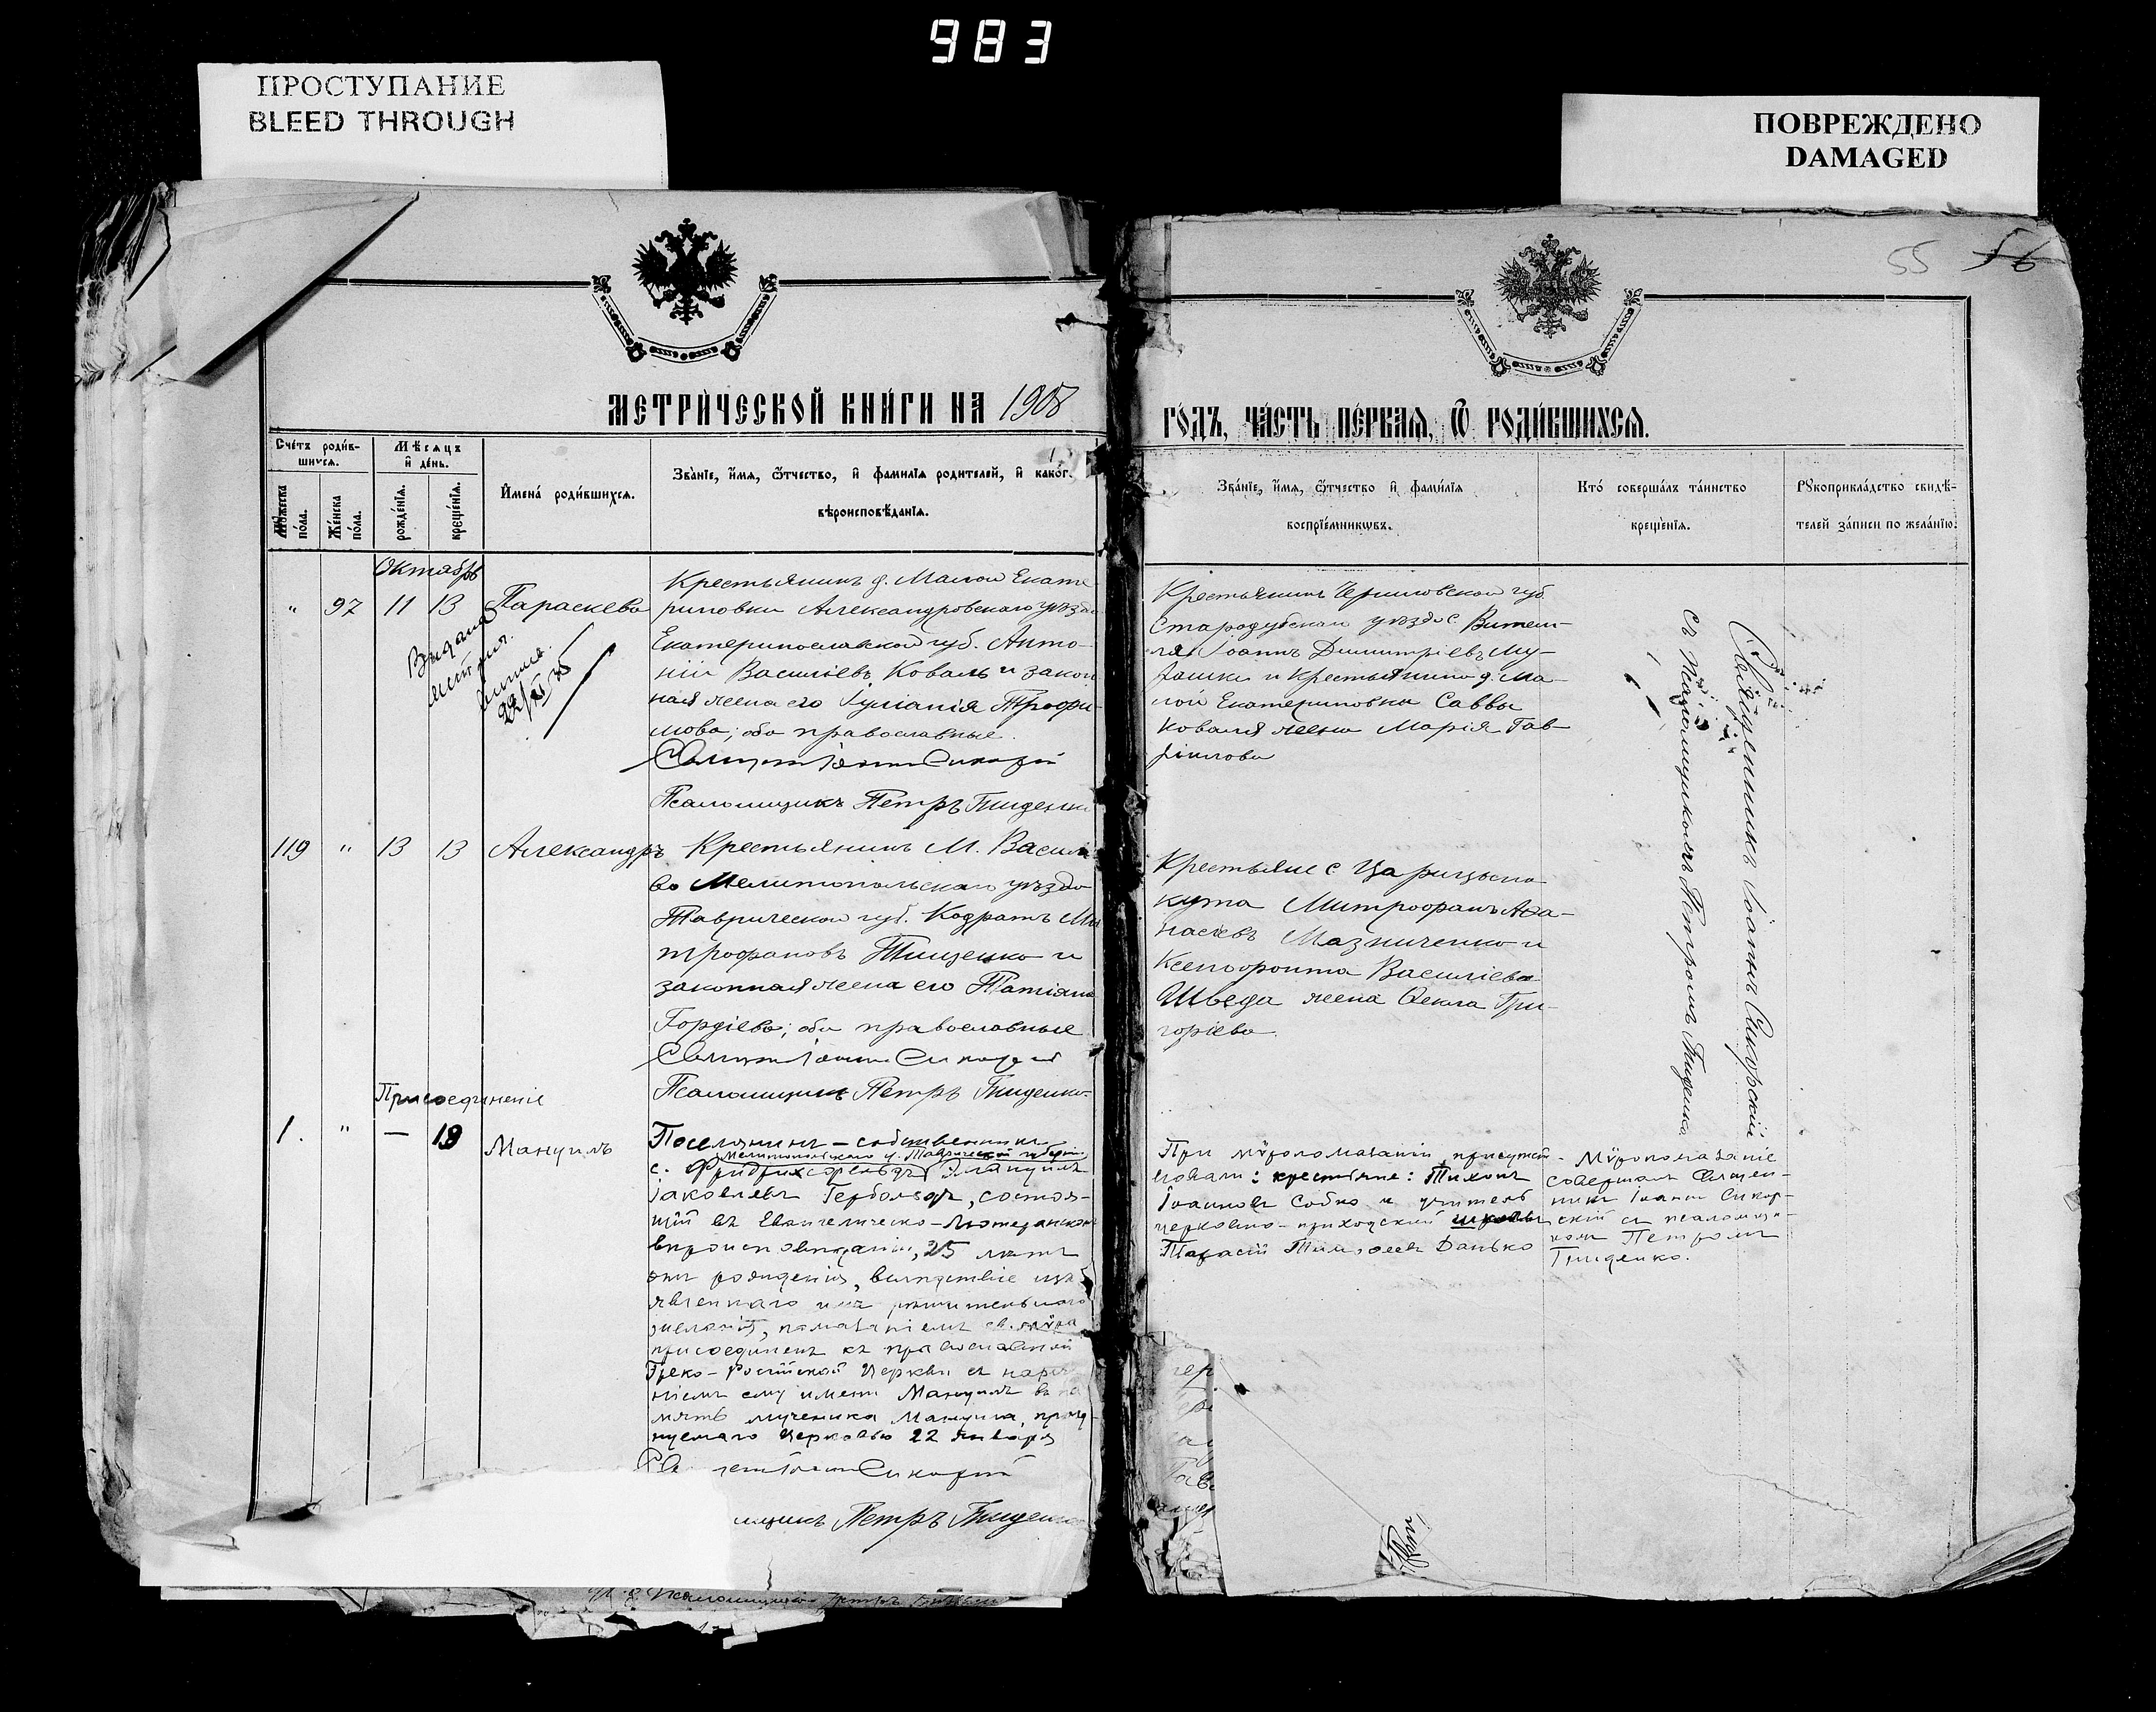 983
ПРОСТУПАНИЕ
BLEED THROUGH
ПОВРЕЖДЕНО
DAMAGED
55 56
МЕТРИ́ЧЕСКОЙ КНИ́ГИ НА 1908
ГО́ДЪ, ЧА́СТЬ ПЕ́РВАЯ, Ѿ РОДИ́ВШИХСЯ.
Сче́тъ роди́в-
шихся.
Мѣсяцъ
и҆ де́нь.
Мꙋжеска по́ла.
Же́нска по́ла.
рожде́нїя.
креще́нїя.
И҆мена̀ роди́вшихся.
Зва́нїе, и҆́мя, ѻ҆́тчество, и҆ фами́лїя роди́телей, и҆ како́г.
вѣроисповѣ́данїя.
Зва́нїе, и҆́мя, ѻ҆́тчество и҆ фами́лїя
воспрїе́мникѡвъ.
Кто́ соверша́лъ та́инство
креще́нїя.
Рꙋкоприкла́дство свидѣ́-
телей за́писи по жела́нїю.
Октябрь
" 97 11 13 Параскева
Выдана
22/XI 35
Крестьянинъ д. Малой Екате
риновки Александровскаго уѣзда
Екатеринославской губ. Анто-
ній Василіевъ Коваль и закон
ная жена его Іуліанія Трофи-
мова; оба православные.
Псаломщикъ Петръ Гниденко
Крестьянинъ Черниговской губ.
Стародубскаго уѣзда с.
Іоаннъ Димитріевъ Му-
и крестьянина д. Ма-
лой Екатериновки Саввы
Коваля жена Марія Гав-
ріилова
Священникъ Іоаннъ Сикорскій
съ Псаломщикомъ Петромъ Гниденко
119 " 13 13 Александръ
Крестьянинъ М. Василь
во Мелитопольскаго уѣзда
Таврической губ. Кодратъ Ми
трофановъ Тищенко и
законная жена его Татіана
Гордіева; оба православные
Псаломщикъ Петръ Гниденко
Крестьяне с Царицына
кута Митрофанъ Афа-
насіевъ Мазниченко и
Ксенофонта Василіева
Шведа жена Ѳекла Гри-
горіева.
Присоединеніе
1. " — 18 Мануилъ
Поселянинъ – собственникъ
Мелитопольскаго у. Таврической губерніи
с. Фридрихсфельдъ Эмануилъ
Іаковлевъ Гербольдъ, состоя-
щій въ Евангелическо-Лютеранскомъ
вѣроисповѣданіи, 25 лѣтъ
отъ рожденія, вслѣдствіе изъ
явленнаго имъ рѣшительнаго
желанія, помазаніемъ св. мѵра
присоединенъ къ православной
Греко-Россійской Церкви съ нарече
ніемъ ему имени Мануилъ въ па
мять мученика Мануила, празд-
нуемаго Церковью 22 января
мщикъ Петръ Гниденко
При мѵропомазаніи присутст-
вовали: крестьяне: Тихонъ
Іоанновъ Собко и учитель
церковно-приходской школы
Тарасій Данько
Мѵропомазаніе
совершалъ Священ-
никъ Іоаннъ Сикор-
скій съ псаломщи-
комъ Петромъ
Гниденко.